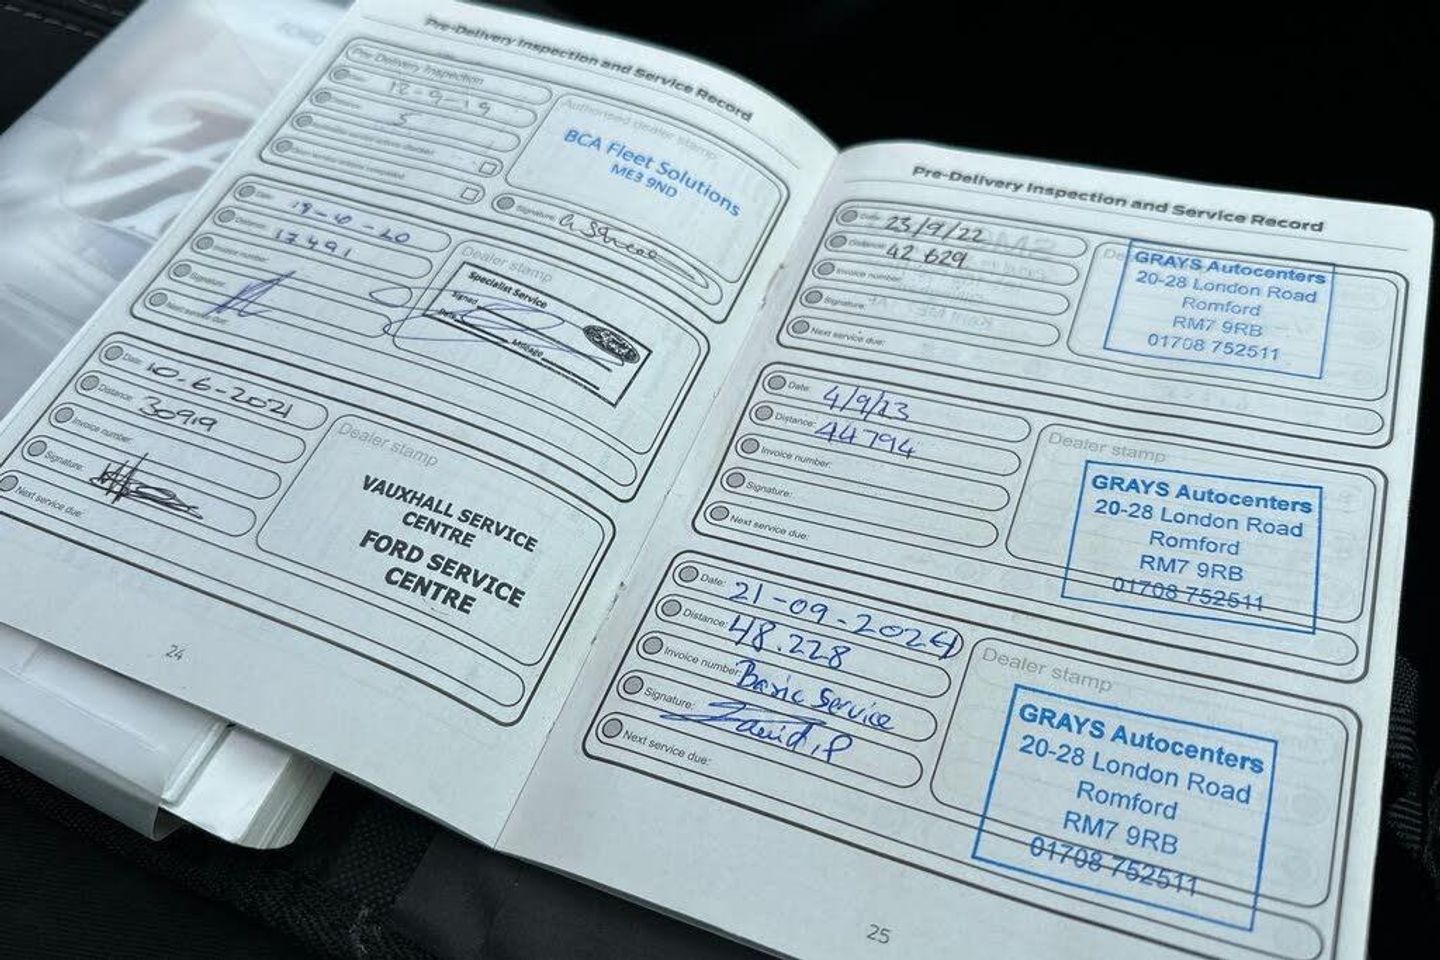 Pre-Delivery Inspection and Service Record
Pre Delivery Inspection
Date: 12-9-19
Distance: 5
Authorised dealer stamp
BCA Fleet Solutions
ME3 9ND
Signature:
Date: 19-10-20
Distance: 17491
Invoice number:
Signature:
Next service due:
Dealer stamp
Specialist Service
Signed
Date
Mileage
Ford
Date: 10-6-2021
Distance: 30919
Invoice number:
Signature:
Next service due:
Dealer stamp
VAUXHALL SERVICE
CENTRE
FORD SERVICE
CENTRE
24
Pre-Delivery Inspection and Service Record
Date: 23/9/22
Distance: 42 629
Invoice number:
Signature:
Next service due:
GRAYS Autocenters
20-28 London Road
Romford
RM7 9RB
01708 752511
Date: 4/9/23
Distance: 44794
Invoice number:
Signature:
Next service due:
Dealer stamp
GRAYS Autocenters
20-28 London Road
Romford
RM7 9RB
01708 752511
Date: 21-09-2024
Distance: 48.228
Invoice number: Basic Service
Signature: David.P
Next service due:
Dealer stamp
GRAYS Autocenters
20-28 London Road
Romford
RM7 9RB
01708 752511
25